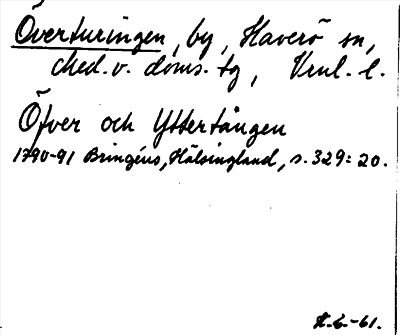 Överturingen, by, Haverö sn,
Med. v. doms. tg, Vrnl. l.
Öfver och Yttertången
1790-91 Bringéus, Hälsingland, s. 329: 20.
-61.